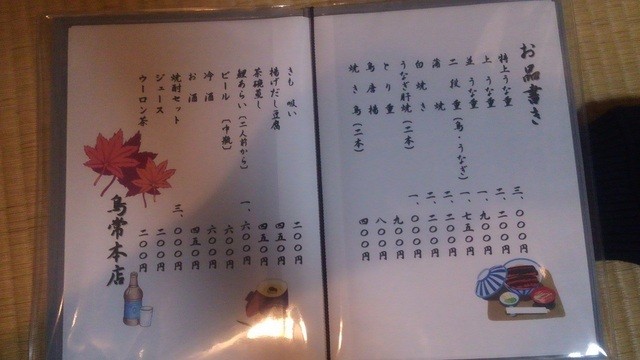 お品書き
特上うな重 三、〇〇〇円
上うな重 二、二〇〇円
並うな重 一、九〇〇円
二段重（鳥・うなぎ） 一、七五〇円
蒲焼 二、二〇〇円
白焼き 二、二〇〇円
うなぎ肝焼（二本） 一、〇〇〇円
とり重 九〇〇円
鳥唐揚 八〇〇円
焼き鳥（二本） 四〇〇円
きも吸い 二〇〇円
揚げだし豆腐 四五〇円
茶碗蒸し 四五〇円
鯉あらい（二人前から） 一、六〇〇円
ビール〔中瓶〕 六〇〇円
冷酒 六〇〇円
お酒 四五〇円
焼酎セット 三、〇〇〇円
ジュース 二〇〇円
ウーロン茶 二〇〇円
鳥常本店